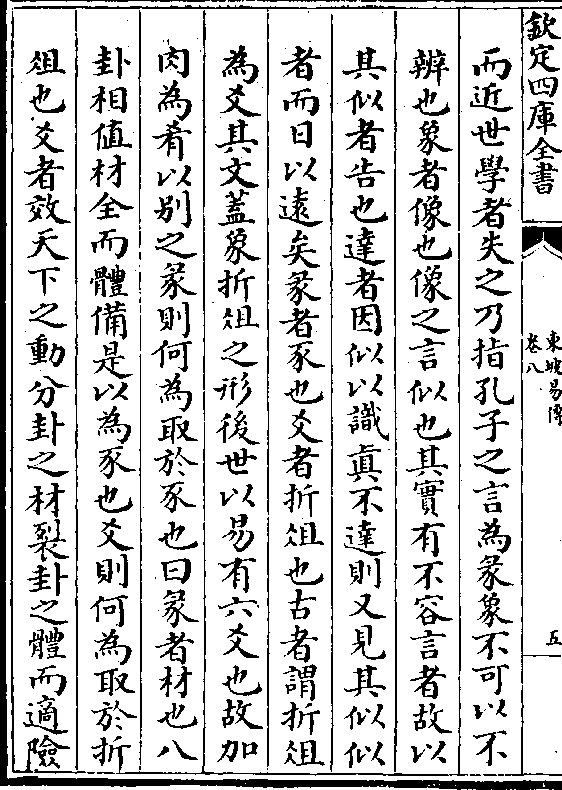 欽定四庫全書
東坡易傳
卷八
五
而近世學者失之乃指孔子之言為彖象不可以不
辨也象者像也像之言似也其實有不容言者故以
其似者告也達者因似以識真不達則又見其似似
者而日以遠矣彖者豕也爻者折俎也古者謂折俎
為爻其文蓋象折俎之形後世以易有六爻也故加
肉為肴以别之彖則何為取於豕也曰彖者材也八
卦相值材全而體備是以為豕也爻則何為取於折
俎也爻者效天下之動分卦之材裂卦之體而適險